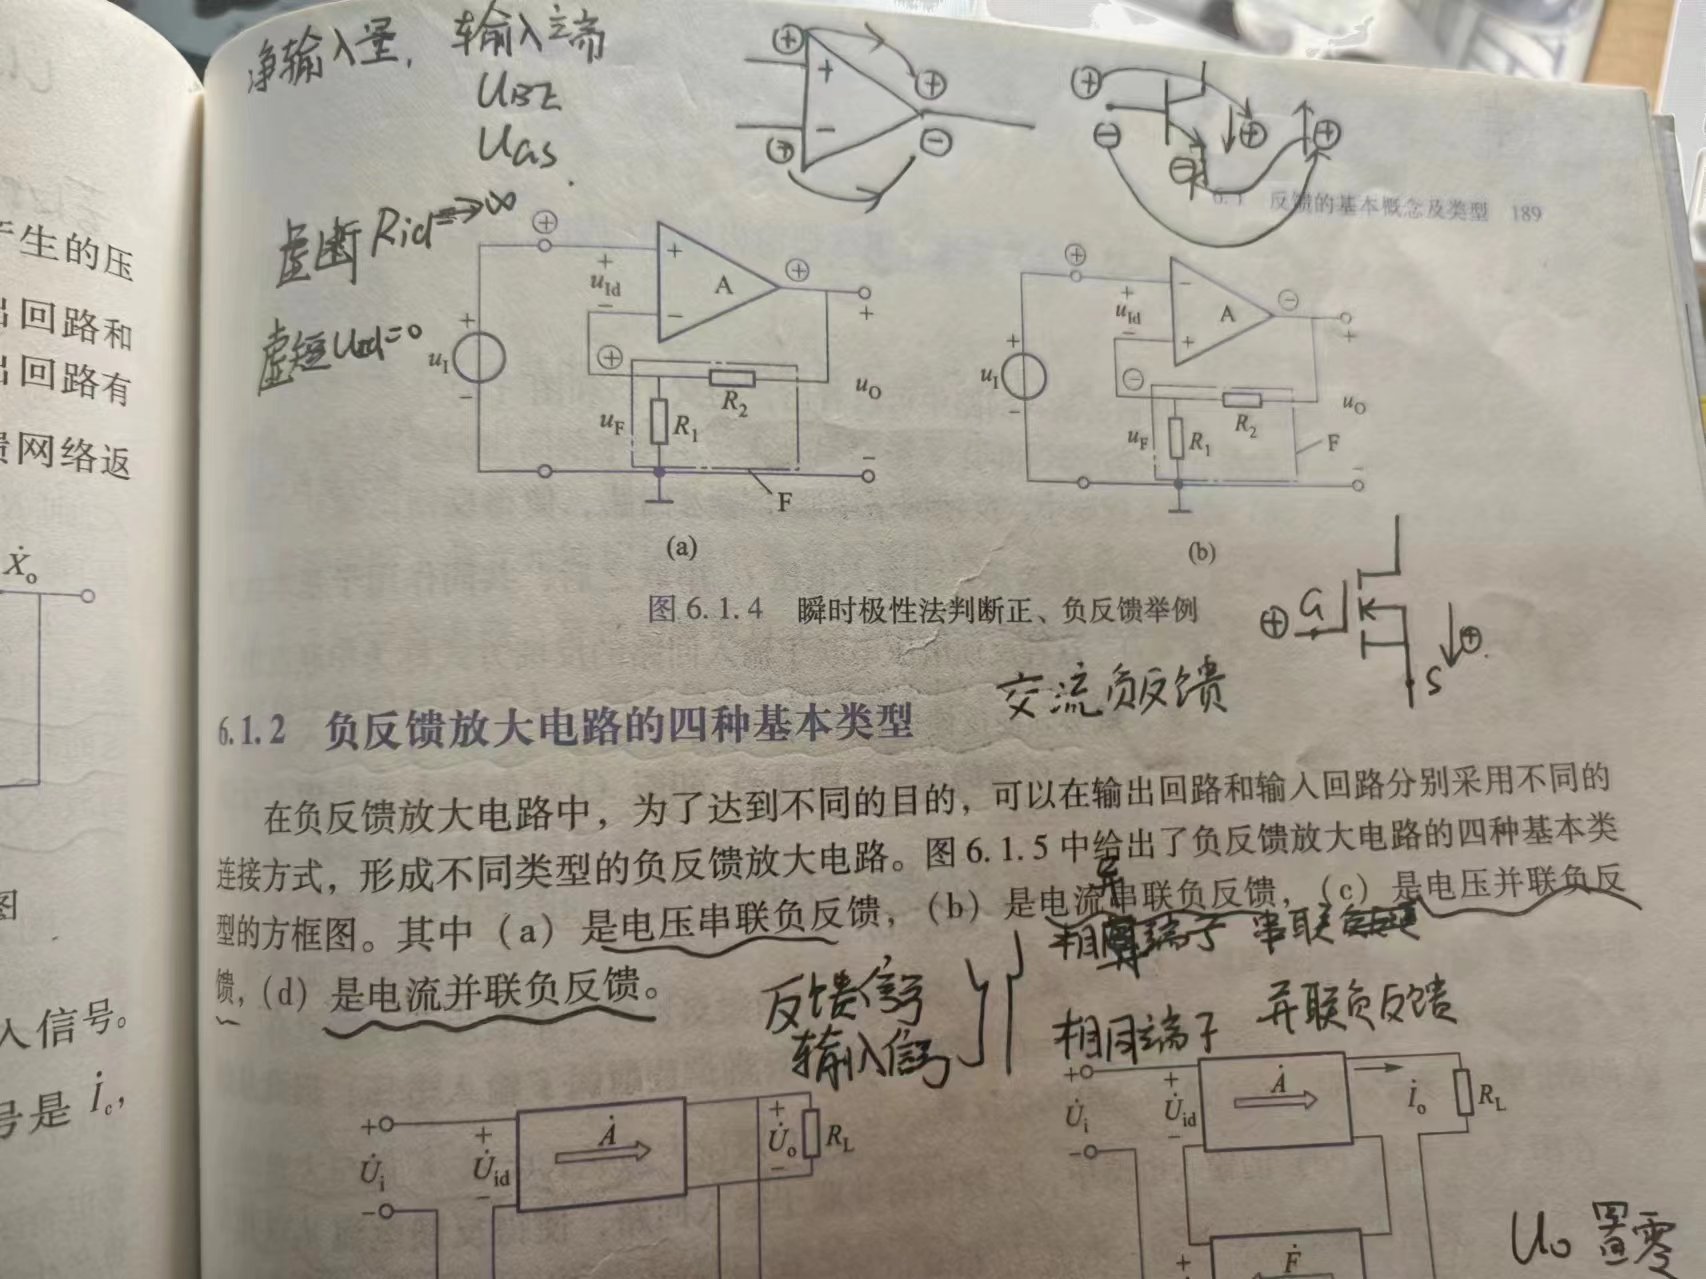 净输入量, 输入端
UBE
UGS
虚断 Rid→∞
虚短 UId=0
+
−
⊕
⊕
⊕
⊖
⊕
⊖
⊕
⊕
⊖
反馈的基本概念及类型 189
产生的压
出回路和
出回路有
馈网络返
Ẋo
图
入信号。
号是 İc,
⊕
+
uId
−
+
−
A
⊕
+
uI
−
⊕
R2
uF
R1
+
uO
−
F
(a)
⊕
+
uId
−
−
+
A
⊖
+
uI
−
⊖
R2
uF
R1
+
uO
−
F
(b)
图 6.1.4 瞬时极性法判断正、负反馈举例
⊕ G
S
⊕
交流负反馈
6.1.2 负反馈放大电路的四种基本类型
在负反馈放大电路中，为了达到不同的目的，可以在输出回路和输入回路分别采用不同的
连接方式，形成不同类型的负反馈放大电路。图 6.1.5 中给出了负反馈放大电路的四种基本类
型的方框图。其中（a）是电压串联负反馈，（b）是电流串联负反馈，（c）是电压并联负反
馈，（d）是电流并联负反馈。
反馈信号
输入信号
异
端子 串联
相同端子 并联负反馈
+
U̇i
−
+
U̇id
−
Ȧ
+
U̇o
−
RL
+
U̇i
−
+
U̇id
−
Ȧ
İo
RL
+
Ḟ
Uo 置零